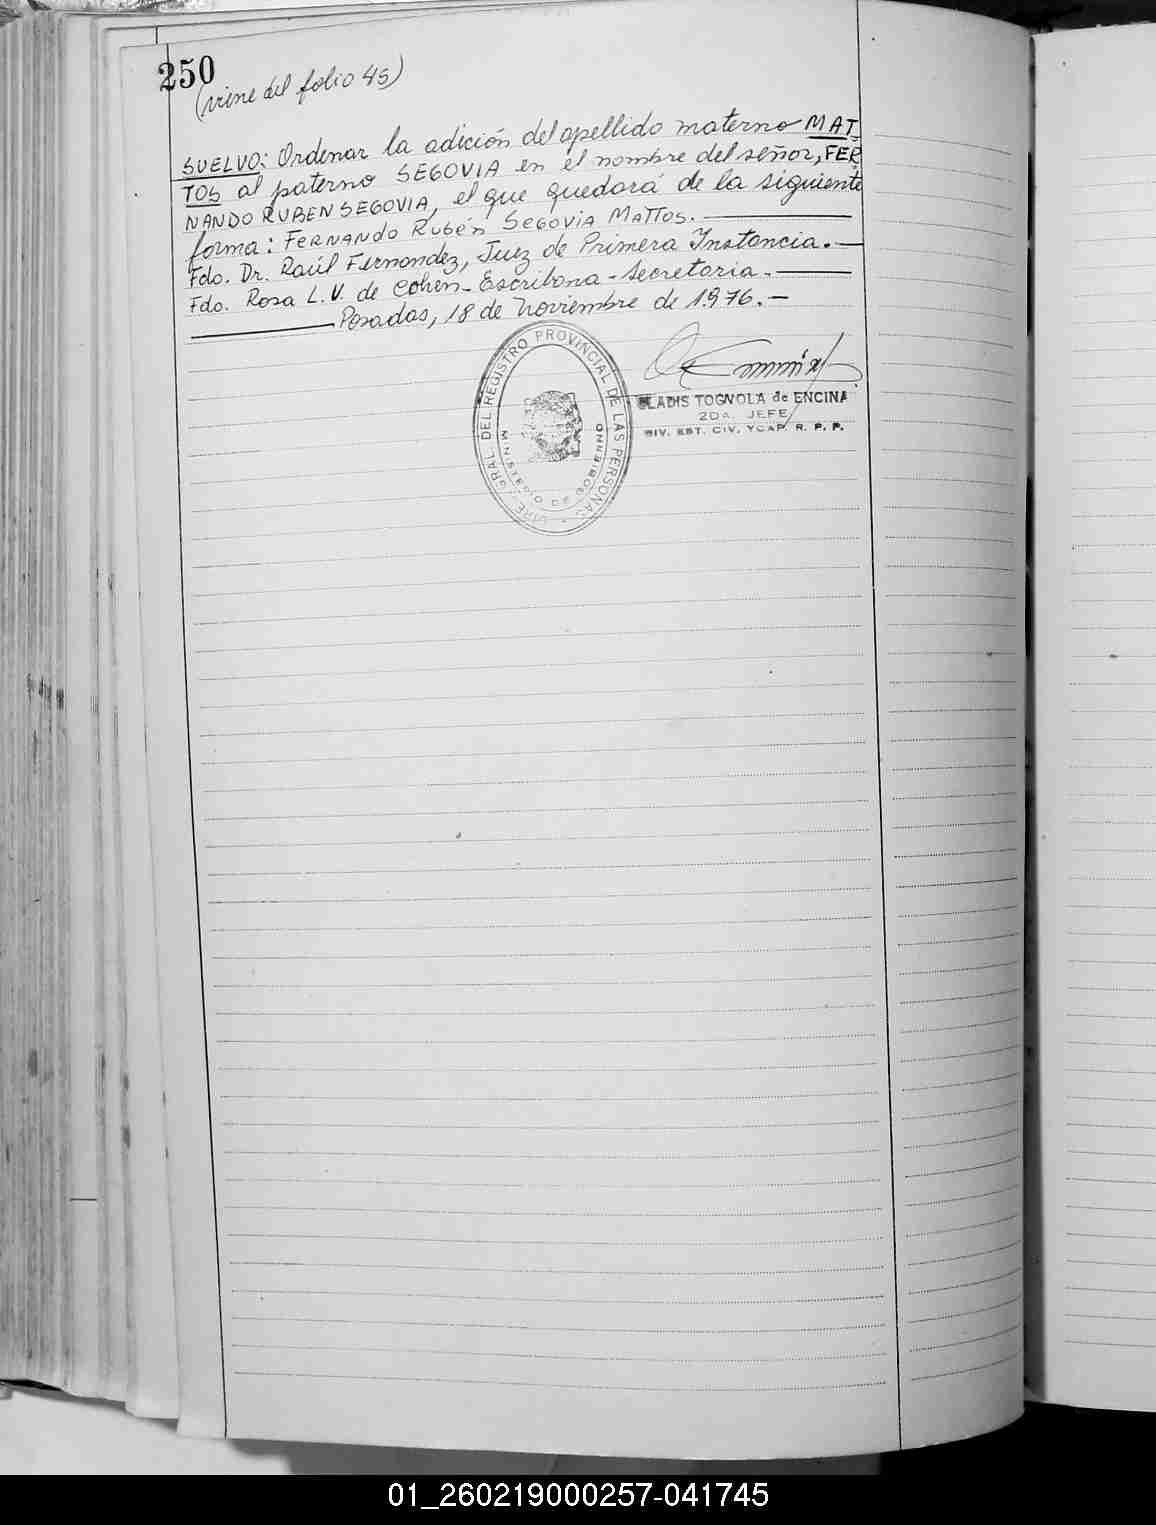 250
(viene del folio 45)
SUELVO: Ordenar la adición del apellido materno MAT-
TOS al paterno SEGOVIA en el nombre del señor, FER-
NANDO RUBEN SEGOVIA, el que quedará de la siguiente
forma: FERNANDO RUBÉN SEGOVIA MATTOS.
Fdo. Dr. Raúl Fernandez, Juez de Primera Instancia.-
Fdo. Rosa L.V. de Cohen - Escribana - Secretaria.
Posadas, 18 de Noviembre de 1.976.-
DIRE. GRAL DEL REGISTRO PROVINCIAL DE LAS PERSONAS
MINISTERIO DE GOBIERNO
GLADIS TOGNOLA de ENCINA
2DA. JEFE
DIV. EST. CIV. YCAP. R. P. P.
01_260219000257-041745